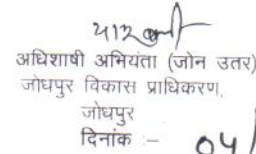 अधिशाषी अभियंता (जोन उतर)
जोधपुर विकास प्राधिकरण,
जोधपुर
दिनांक :– 04/